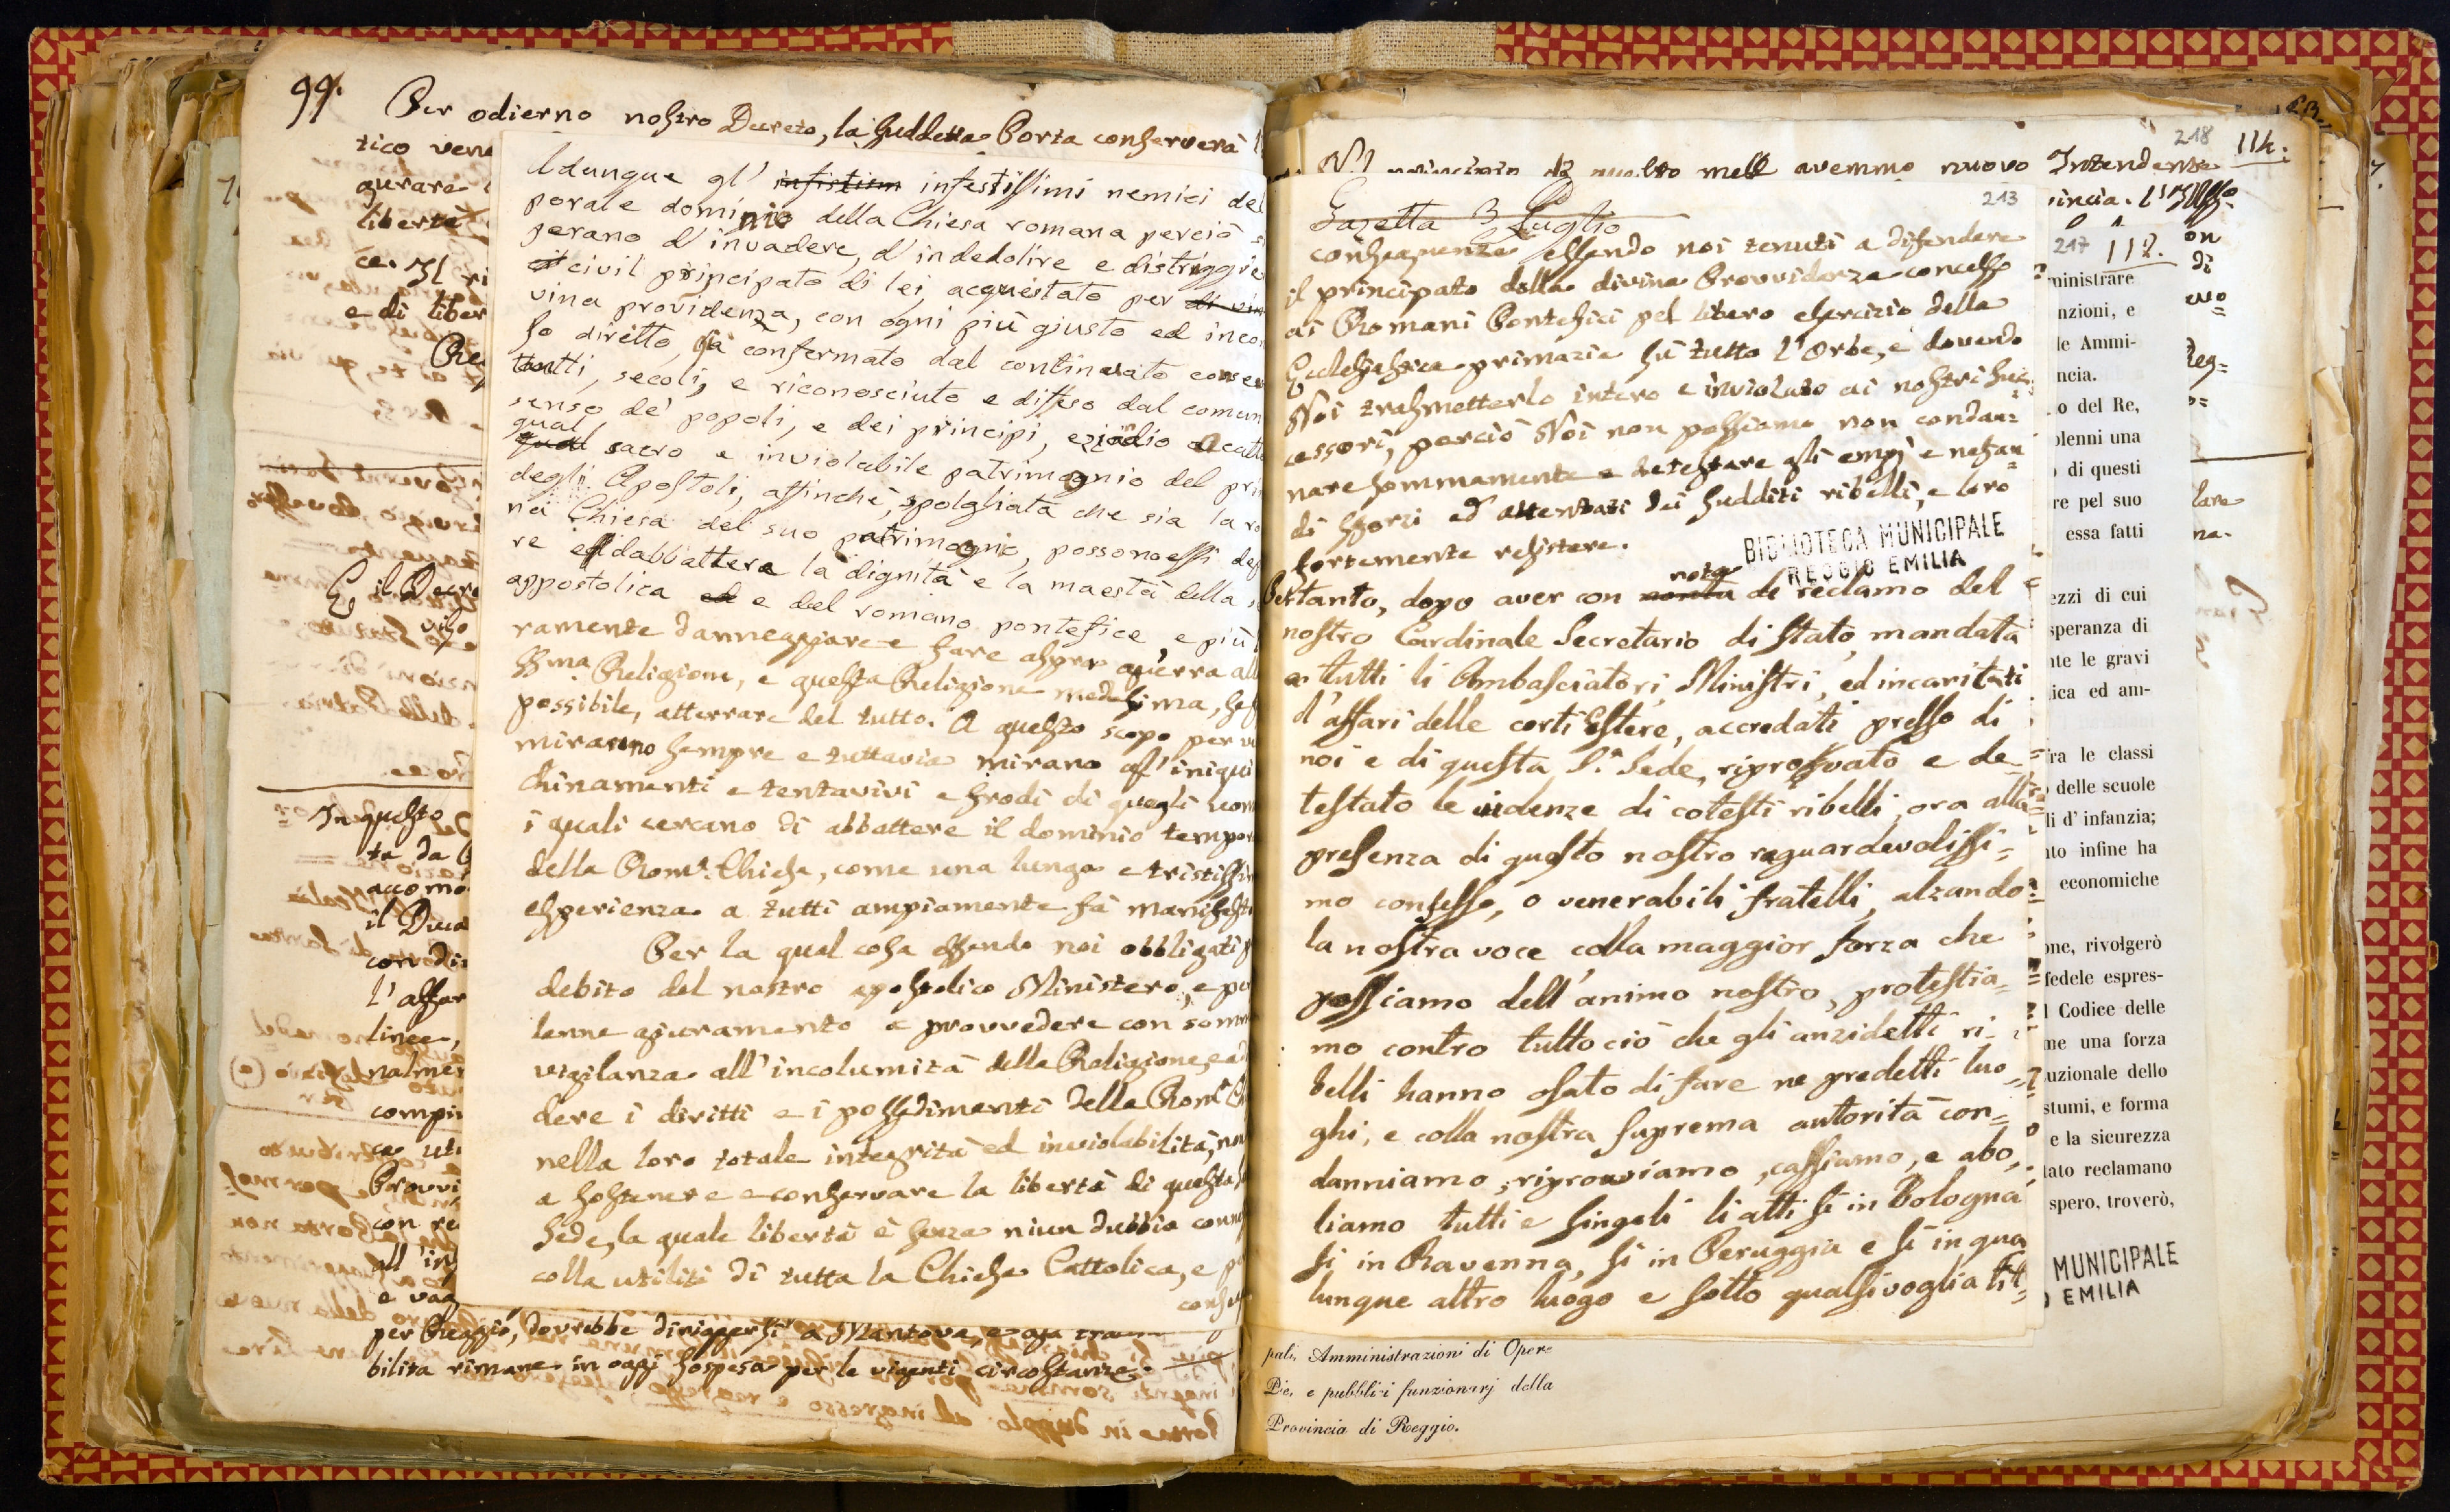 99.
Per odierno nostro Decreto, la suddetta Porta conserverà
tico vene
gurare
liberta
ce. Il ri
e di liber
Re
E, il Decre
vilo
In questo
ta da
accomo
il Duca
con di
l'affar
linee,
nalmen
compi
ca uti
Provvi
con re
all'in
e vag
per Reggio, dovrebbe diriggersi a Mantova, e
bilita rimane in oggi sospesa per le vigenti circostanze.
Adunque gl' infestissimi nemici del
porale dominio della Chiesa romana perciò s
perano d'invadere, d'indebolire e distriggie
civil principato di lei, acquistato per di vin
vina providenza, con ogni più giusto ed incon
so diretto, sia confermato dal continuato conse
tantti, secoli, e riconosciuto e difeso dal comun
senso de' popoli, e dei principi, eziadio acatto
qual sacro e inviolabile patrimognio del prin
degli Apostoli, affinché, spolgliata che sia la ro
na Chiesa del suo patrimognio, possono essi dep
re ed abbattere la dignità e la maestà della s
appostolica ed e del romano pontefice, e più
ramente danneggiare e fare aspra guerra all
ssma Religione, e questa Religione medesima, se f
possibile, atterrare del tutto. A questo scopo per v
mirarono sempre e tuttavia mirano gl'iniqui
chinamenti e tentavivi e frodi di quegli uom
i quali cercano di abbattere il dominio tempor
della Roma. Chiesa, come una lunga e tristissim
esperienza a tutti ampiamente fà manifest
Per la qual cosa essendo noi obbligati p
debito del nostro apostolico Ministero, e po
lenne giuramento a provvedere con somm
vigilanza all'incolumità della Religione, e a di
dere i diritti e i possedimenti della Roma. Ch
nella loro totale integrità ed inviolabilità, non
a sostenere e conservare la libertà di questa s
Sede, la quale libertà è senza niun dubbio conne
colla utilità di tutta la Chiesa Cattolica, e p
conseg
218
114.
nuovo Intendente
incia. l'Illss.
213
Gazetta 3 Luglio
conseguenza essendo noi tenuti a difendere
il principato dalla divina Provvidenza concesso
ai Romani Pontefici pel libero esercizio della
Ecclesiastica primazia sù tutto l'Orbe, e dovendo
Noi trasmetterlo intero e inviolato ai nostri suc=
cessori, perciò Noi non possiamo non condan=
nare sommamente e detestare gli empj e nefan=
di sforzi ed attentati dei sudditi ribelli, e loro
fortemente resistere.
BIBLIOTECA MUNICIPALE
REGGIO EMILIA
nota
Pertanto, dopo aver con nonta di reclamo del
nostro Cardinale Secretario di Stato, mandata
a tutti li Ambasciatori, Ministri, ed incaritati
d'affari delle corti Estere, accredati presso di
noi e di questa S.a Sede, riprovato e de=
testato le indenze di cotesti ribelli, ora alla
presenza di questo nostro raguardevolissi=
mo consesso, o venerabili fratelli, alzando
la nostra voce colla maggior forza che
possiamo dell'animo nostro, protestia=
mo contro tutto ciò che gli anzidetti ri=
belli hanno osato di fare ne predetti luo=
ghi, e colla nostra suprema autorità con=
danniamo, riprouviamo, cassiamo, e abo=
liamo tutti e singoli li atti sì in Bologna
sì in Ravenna, sì in Peruggia e sì in qua
lunque altro luogo e sotto qualsivoglia tit=
217
112.
ministrare
nzioni, e
le Ammi-
ncia.
o del Re,
olenni una
di questi
re pel suo
essa fatti
ezzi di cui
speranza di
nte le gravi
ica ed am-
ra le classi
delle scuole
li d'infanzia;
nto infine ha
economiche
one, rivolgerò
fedele espres-
l Codice delle
me una forza
uzionale dello
stumi, e forma
e la sicurezza
lato reclamano
spero, troverò,
MUNICIPALE
EMILIA
pali, Amministrazioni di Opere
Pie, e pubblici funzionarj della
Provincia di Reggio.